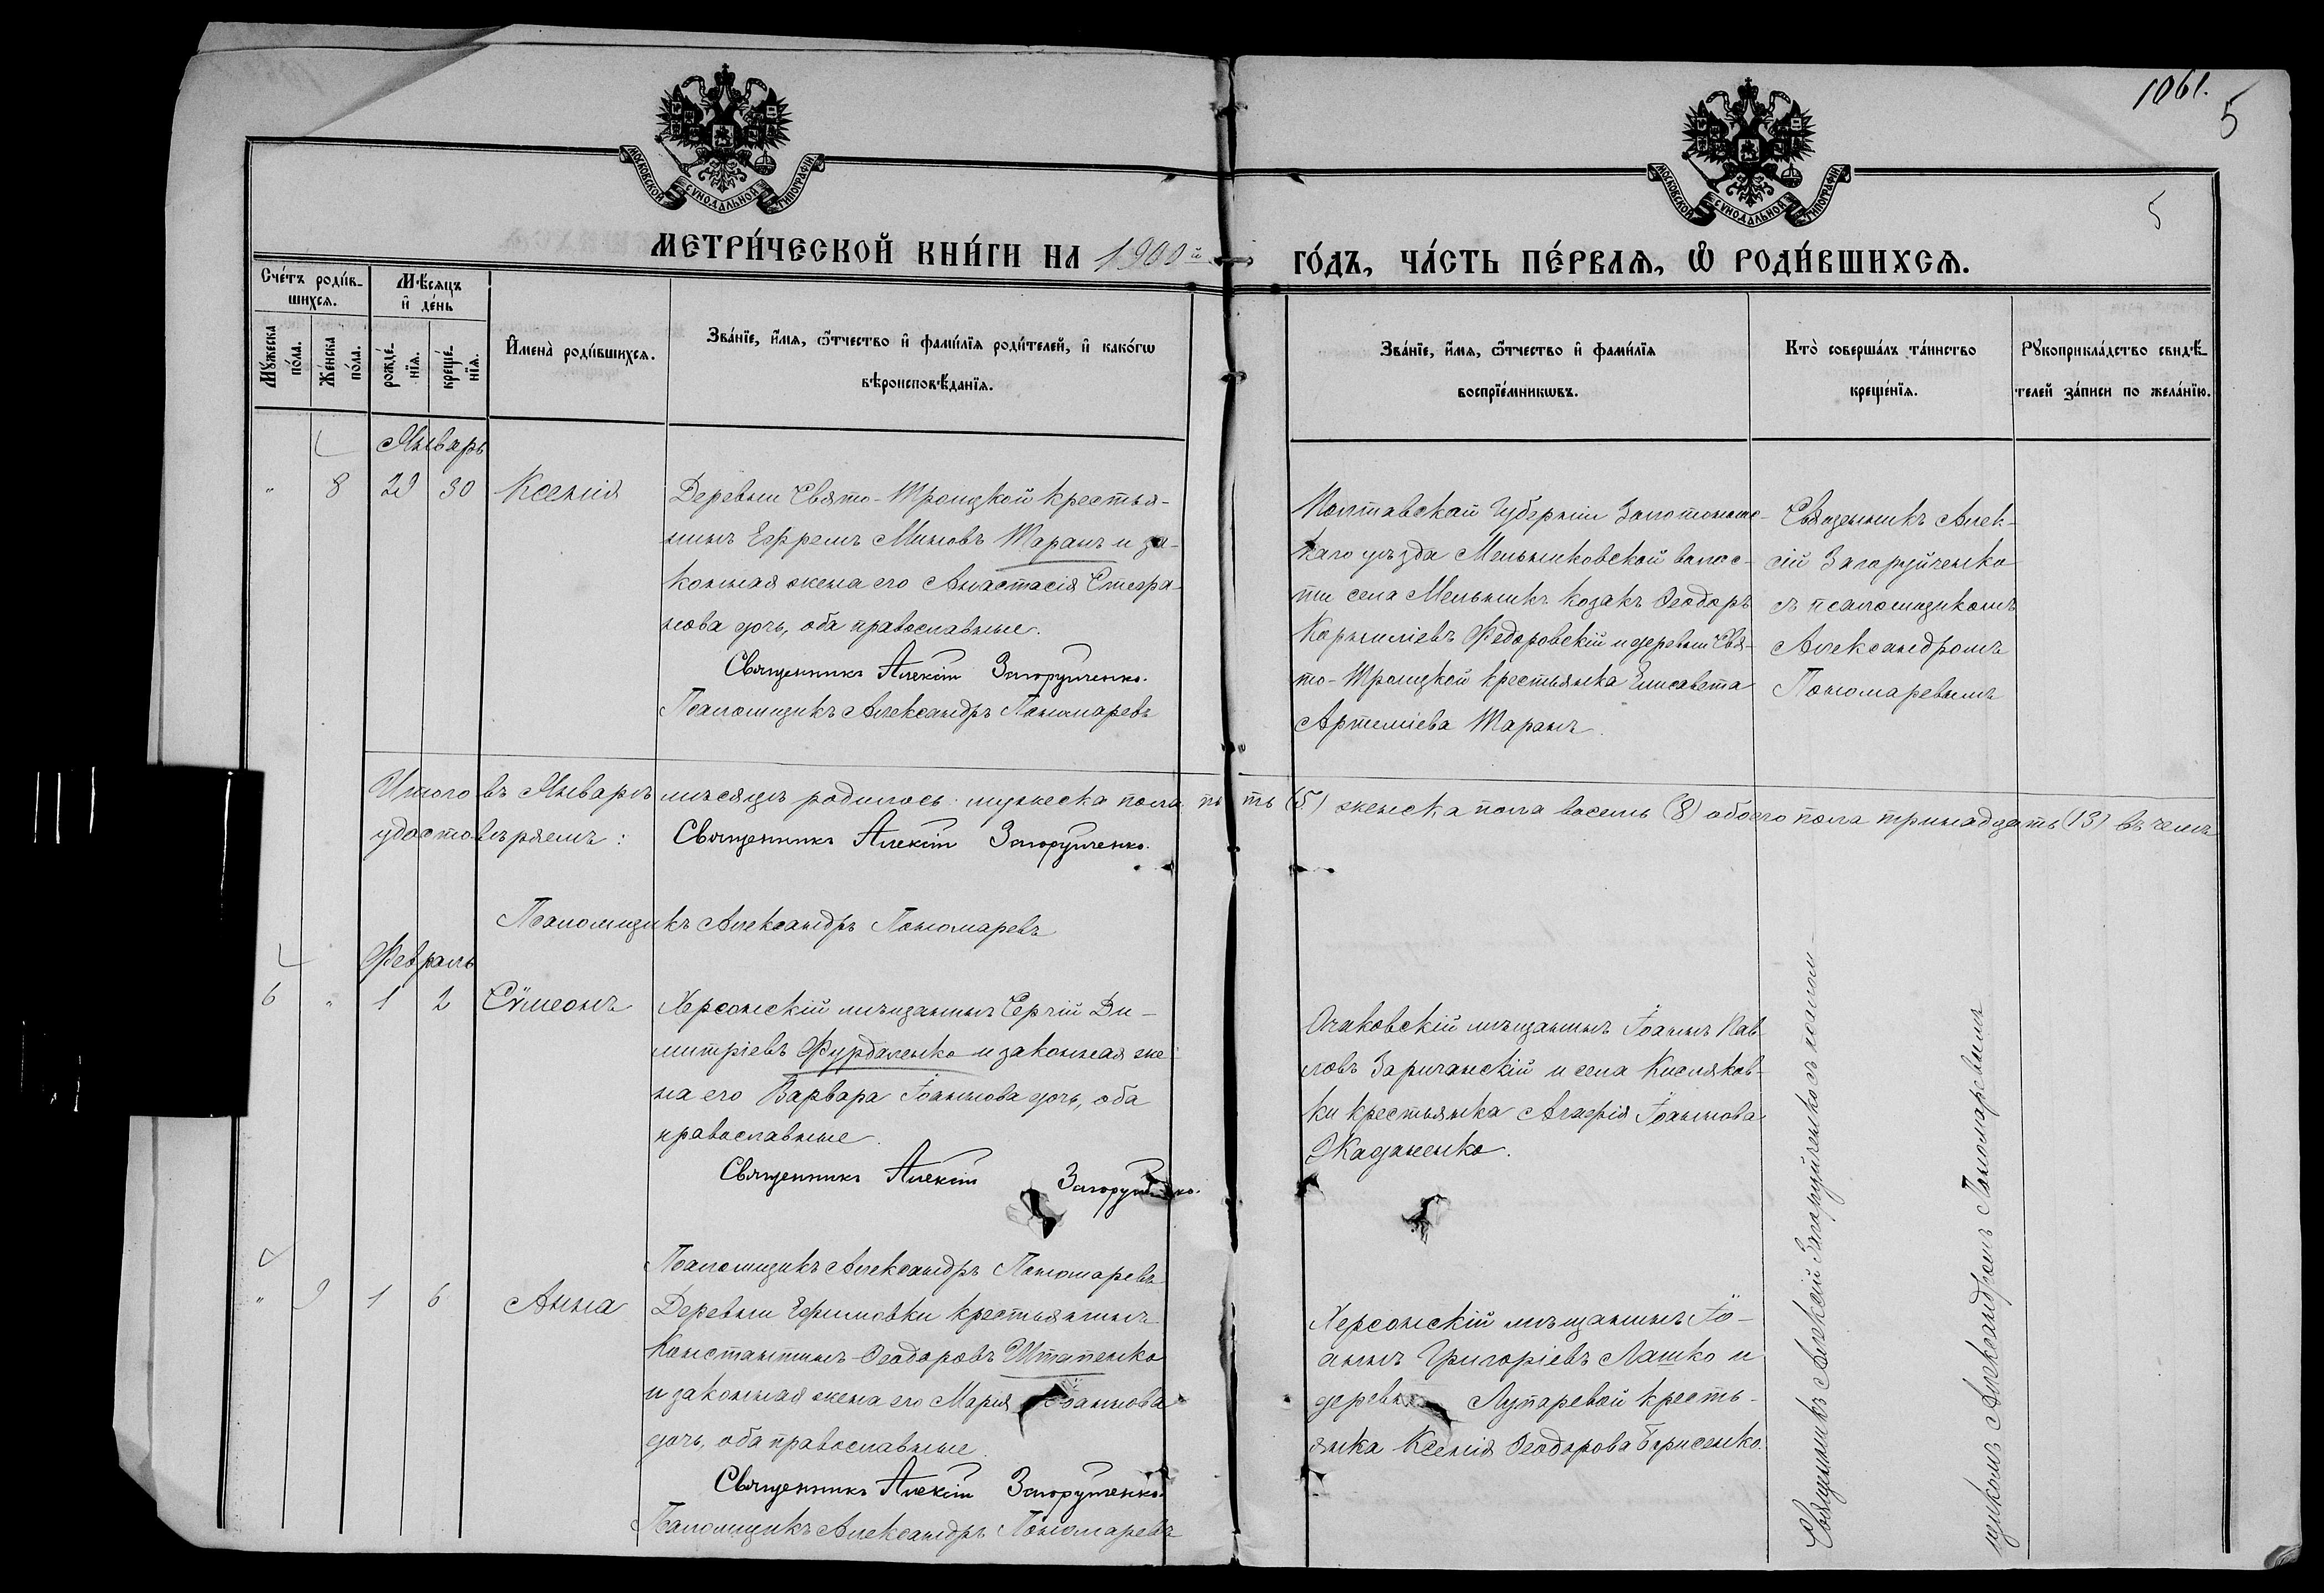 1061.
5
5
МОСКОВСКОЙ СѴНОДАЛЬНОЙ ТИПОГРАФІИ
МОСКОВСКОЙ СѴНОДАЛЬНОЙ ТИПОГРАФІИ
МЕТРИ́ЧЕСКОЙ КНИ́ГИ НА 1900й
ГО́ДЪ, ЧА́СТЬ ПЕ́РВАѦ, Ѡ҆ РОДИ́ВШИХСѦ.
Сче́тъ роди́в-
шихсѧ.
Мѣ́сѧцъ
и҆ де́нь
Мꙋ́жеска
по́ла.
Же́нска
по́ла.
рожде́-
нїѧ.
креще́-
нїѧ.
И҆мена̀ роди́вшихсѧ.
Зва́нїе, и҆́мѧ, ѻ҆́тчество и҆ фами́лїѧ роди́телей, и҆ како́гѡ
вѣроисповѣ́данїѧ.
Зва́нїе, и҆́мѧ, ѻ҆́тчество и҆ фами́лїѧ
воспрїе́мникѡвъ.
Кто̀ соверша́лъ та́инство
креще́нїѧ.
Рꙋкоприкла́дство свидѣ́-
телей за́писи по жела́нїю.
Январь
" 8 29 30 Ксенія
Деревни Свято-Троицкой крестья-
нинъ Ефремъ Миновъ Таранъ и за-
конная жена его Анастасія Стефа-
нова дочь, оба православные.
Священникъ Алексій Загоруйченко.
Псаломщикъ Александръ Пономаревъ
Полтавской Губерніи Золотоношс-
каго уѣзда Мельниковской волос-
ти села Мельникъ козакъ Ѳеодоръ
Корниліевъ Федоровскій и деревни Свя-
то-Троицкой крестьянка Елисавета
Артеміева Таранъ.
Священникъ Алек-
сій Загоруйченко
съ псаломщикомъ
Александромъ
Пономаревымъ
Итого въ Январѣ мѣсяцѣ родилось: мужеска пола пять (5) женска пола восемь (8) обоего пола тринадцать (13) въ чемъ
удостовѣряемъ: Священникъ Алексій Загоруйченко.
Псаломщикъ Александръ Пономаревъ
Февраль
6 " 1 2 Сѵмеонъ
Херсонскій мѣщанинъ Сергій Ди-
митріевъ Фурдаленко и законная же-
на его Варвара Іоаннова дочь, оба
православные.
Священникъ Алексій Загоруйченко.
Псаломщикъ Александръ Пономаревъ
Очаковскій мѣщанинъ Іоаннъ Пав-
ловъ Заричанскій и села Кисляков-
ки крестьянка Агафія Іоаннова
Жаданенко.
" 9 1 6 Анна
Деревни Ефимовки крестьянинъ
Константинъ Ѳеодоровъ Штатенко
и законная жена его Марія Іоаннова
дочь, оба православные.
Священникъ Алексій Загоруйченко.
Псаломщикъ Александръ Пономаревъ
Херсонскій мѣщанинъ Іо-
аннъ Григоріевъ Лашко и
деревни Лупаревой кресть-
янка Ксенія Ѳеодорова Борисенко.
Священникъ Алексій Загоруйченко съ псалом-
щикомъ Александромъ Пономаревымъ